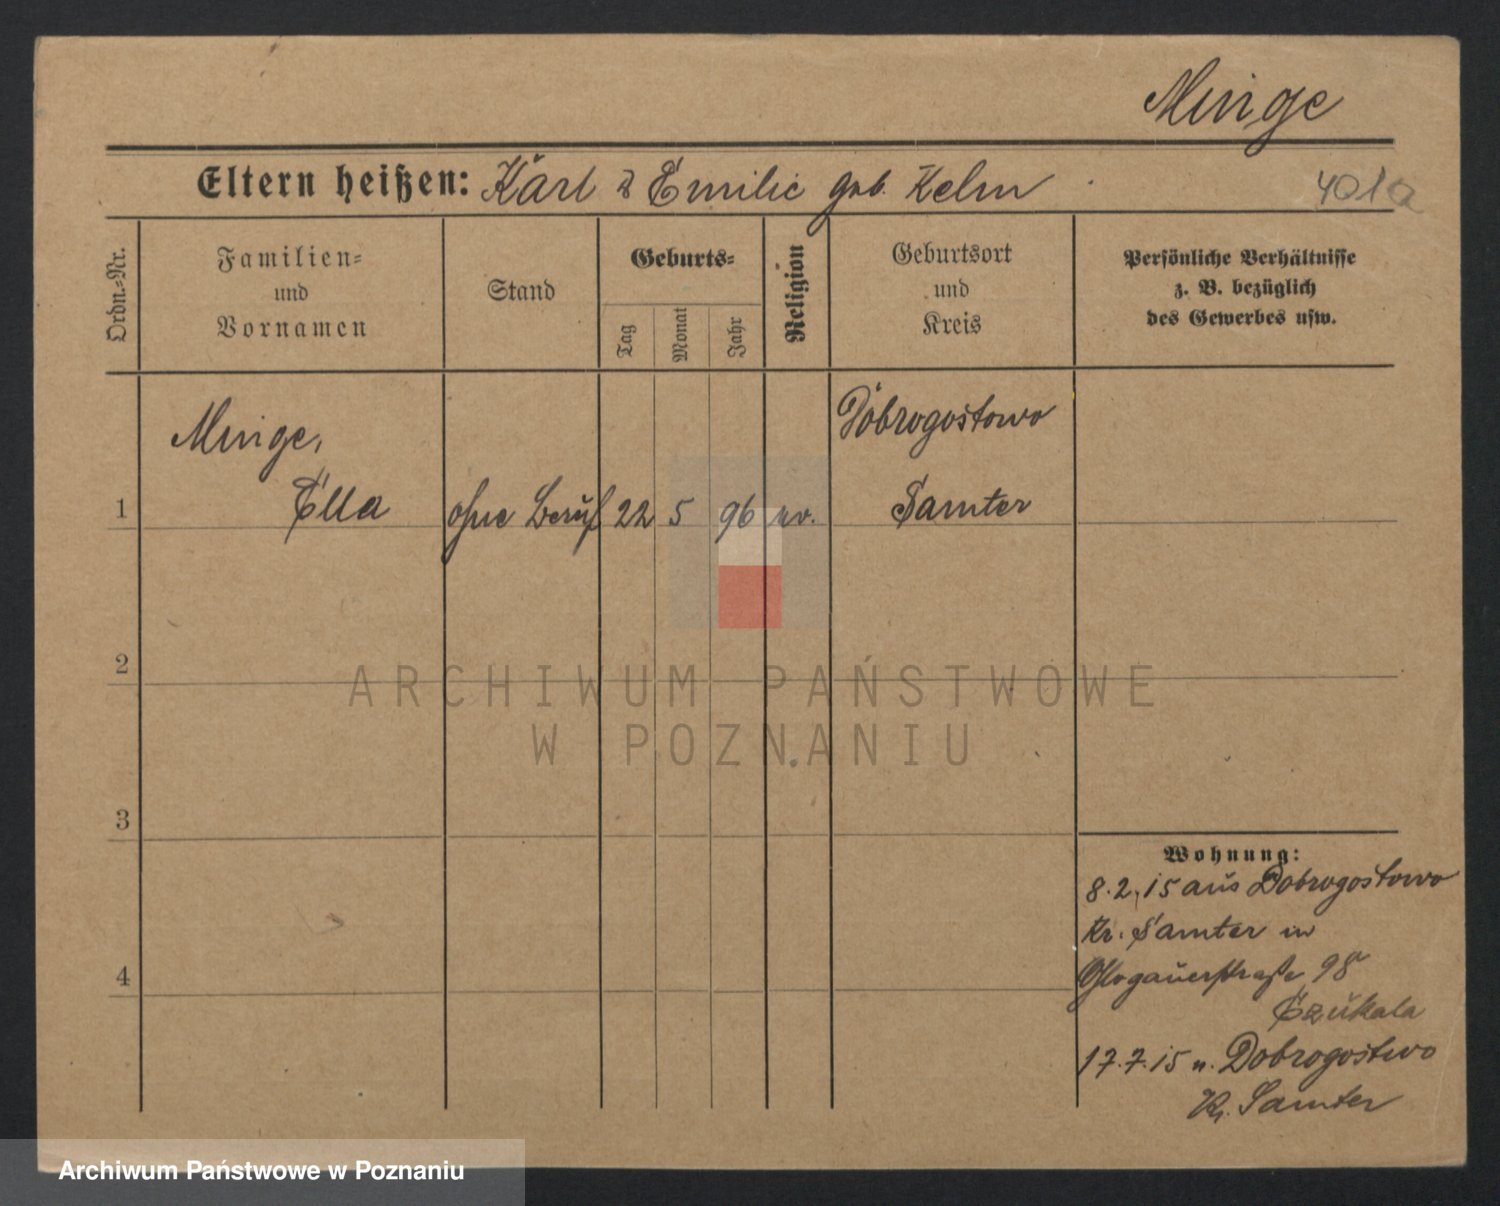 Minge
Eltern heißen: Karl & Emilie geb. Kelm
401a
Ordn.-Nr.
Familien-
und
Vornamen
Stand
Geburts-
Tag
Monat
Jahr
Religion
Geburtsort
und
Kreis
Persönliche Verhältnisse
z. B. bezüglich
des Gewerbes usw.
Minge, Dobrogostowo
1 Ella ohne Beruf 22 5 96 ev. Samter
2
ARCHIWUM PAŃSTWOWE
W POZNANIU
3
Wohnung:
8.2.15 aus Dobrogostowo
Kr. Samter in
Glogauerstraße 98
Czukala
4
17.7.15 n. Dobrogostwo
Kr. Samter
Archiwum Państwowe w Poznaniu